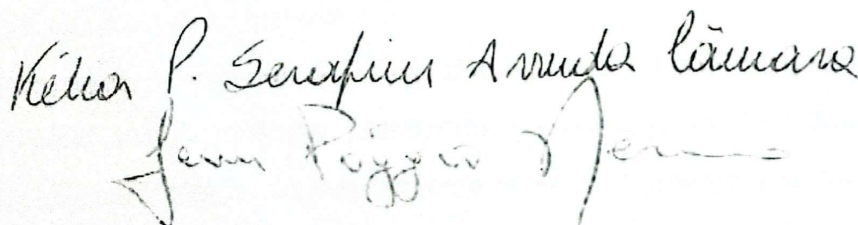 Kélia P. Serafim Arruda Câmara
Jean Poggio